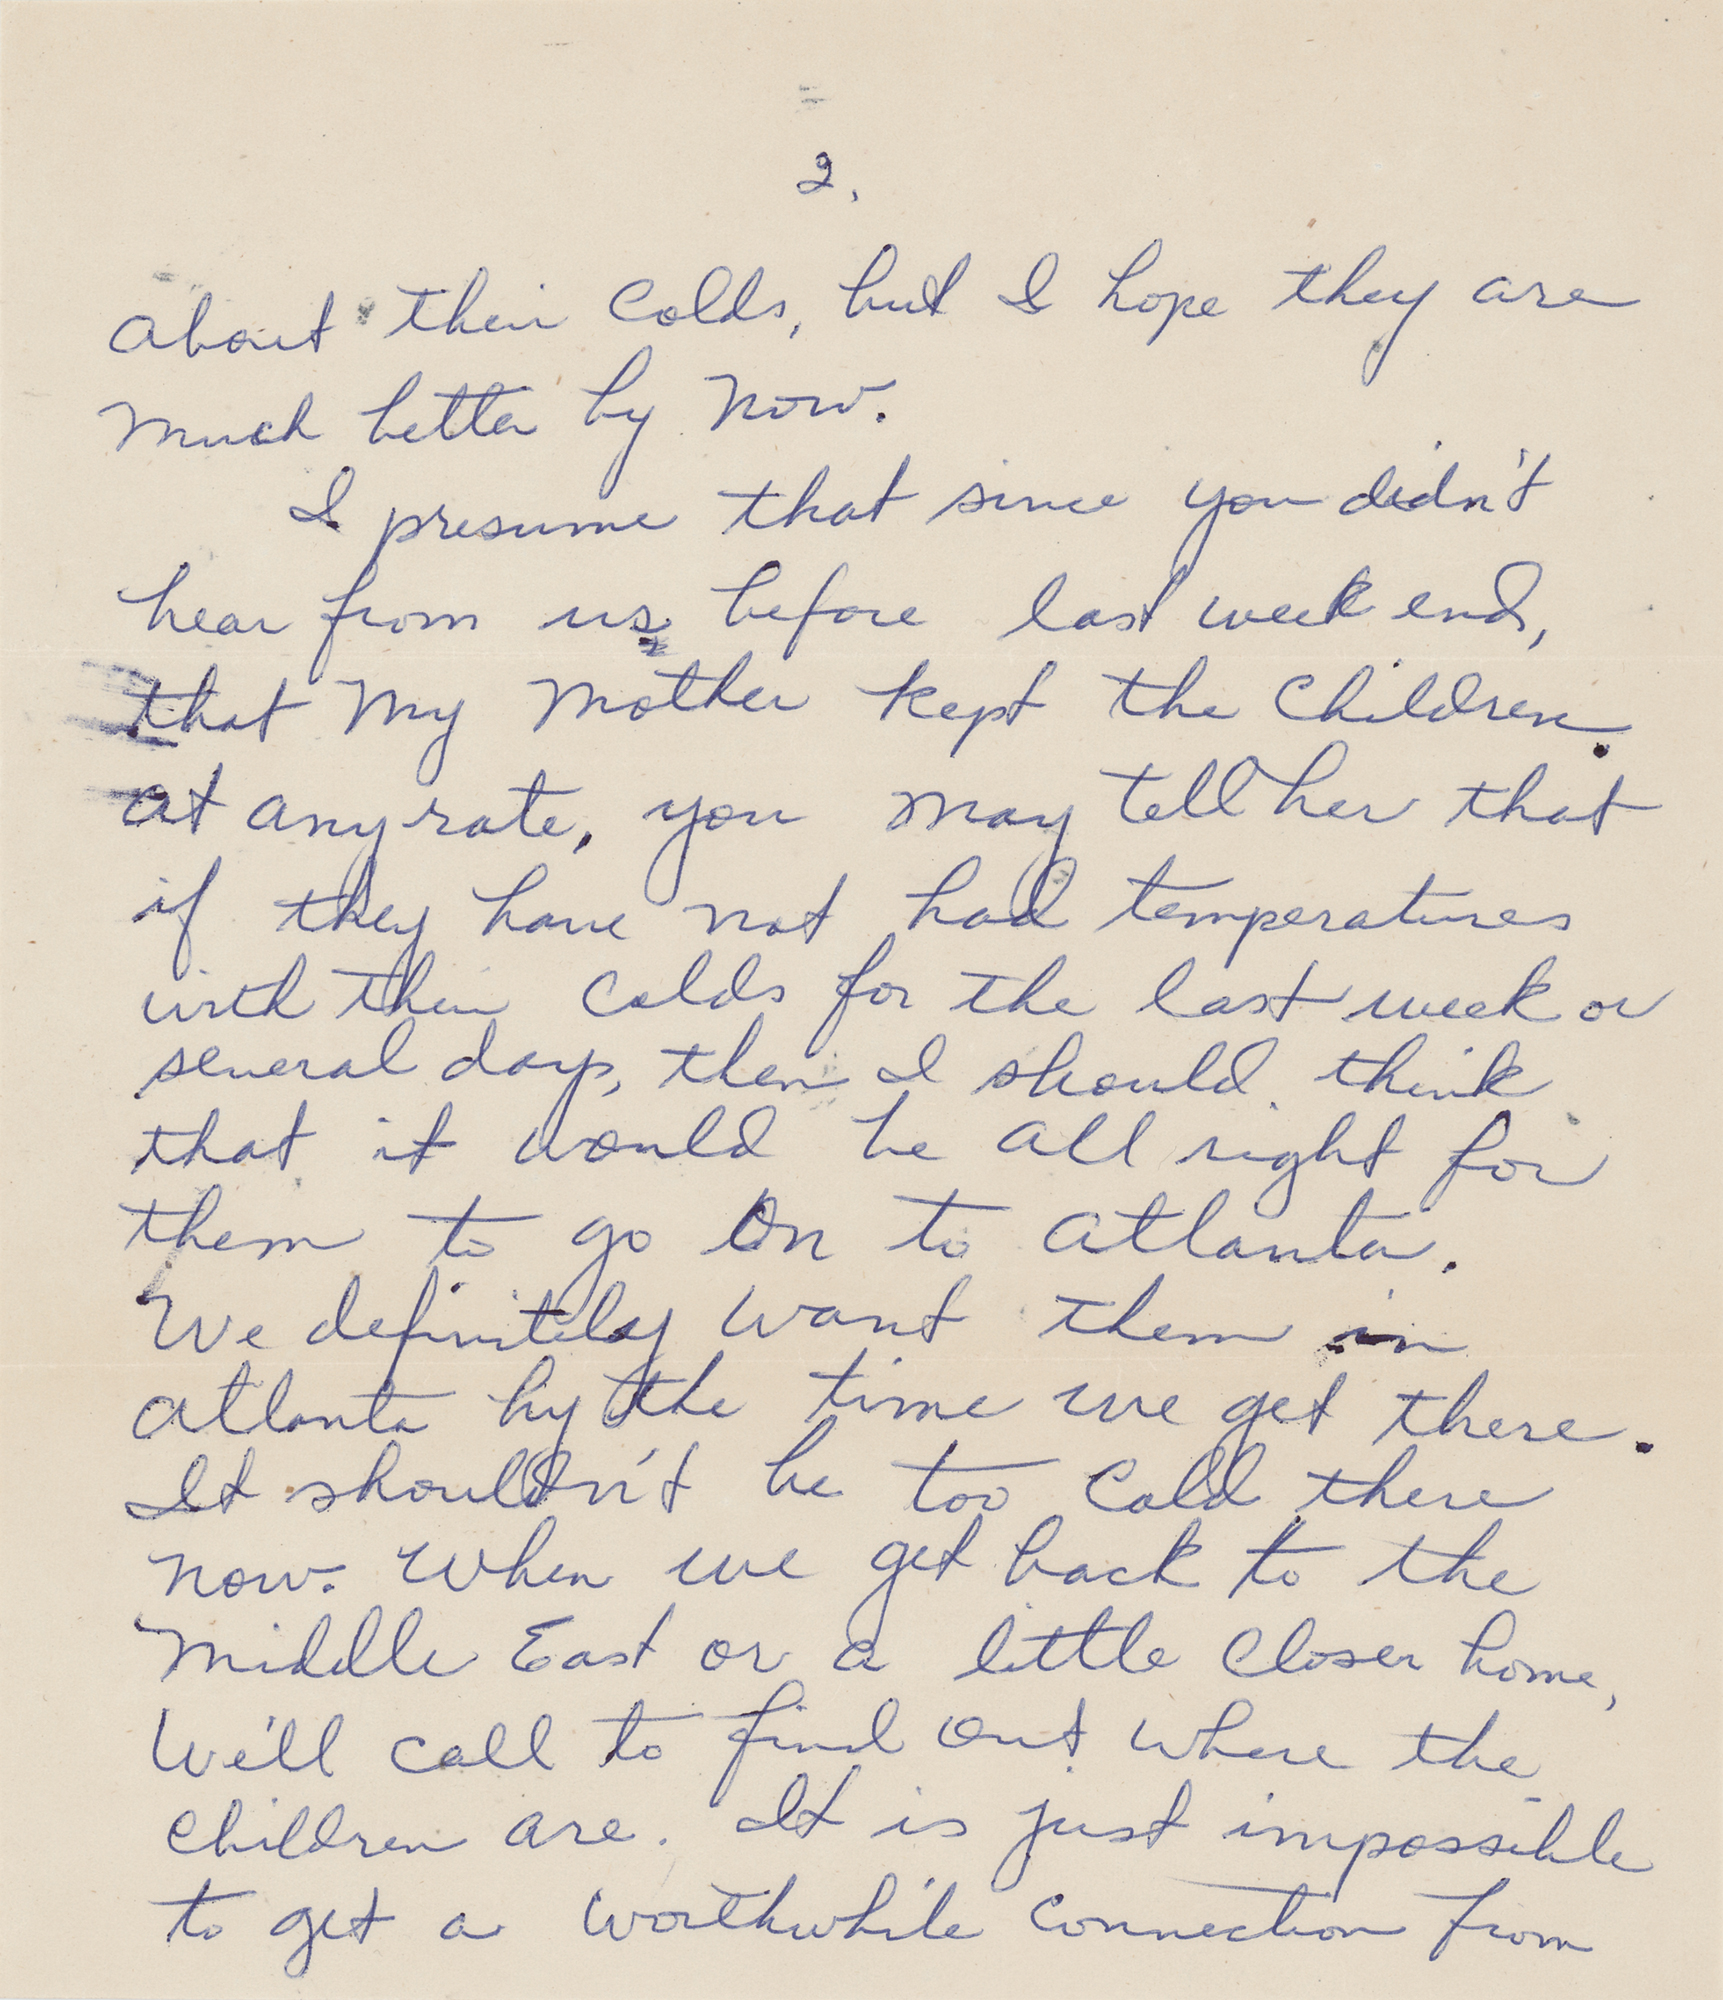 2.
about their colds, but I hope they are
much better by now.
I presume that since you didn't
hear from us before last week end,
that my mother kept the children.
At any rate, you may tell her that
if they have not had temperatures
with their colds for the last week or
several days, then I should think
that it would be all right for
them to go on to Atlanta.
We definitely want them in
Atlanta by the time we get there.
It shouldn't be too cold there
now. When we get back to the
Middle East or a little closer home,
We'll call to find out where the
children are. It is just impossible
to get a worthwhile connection from